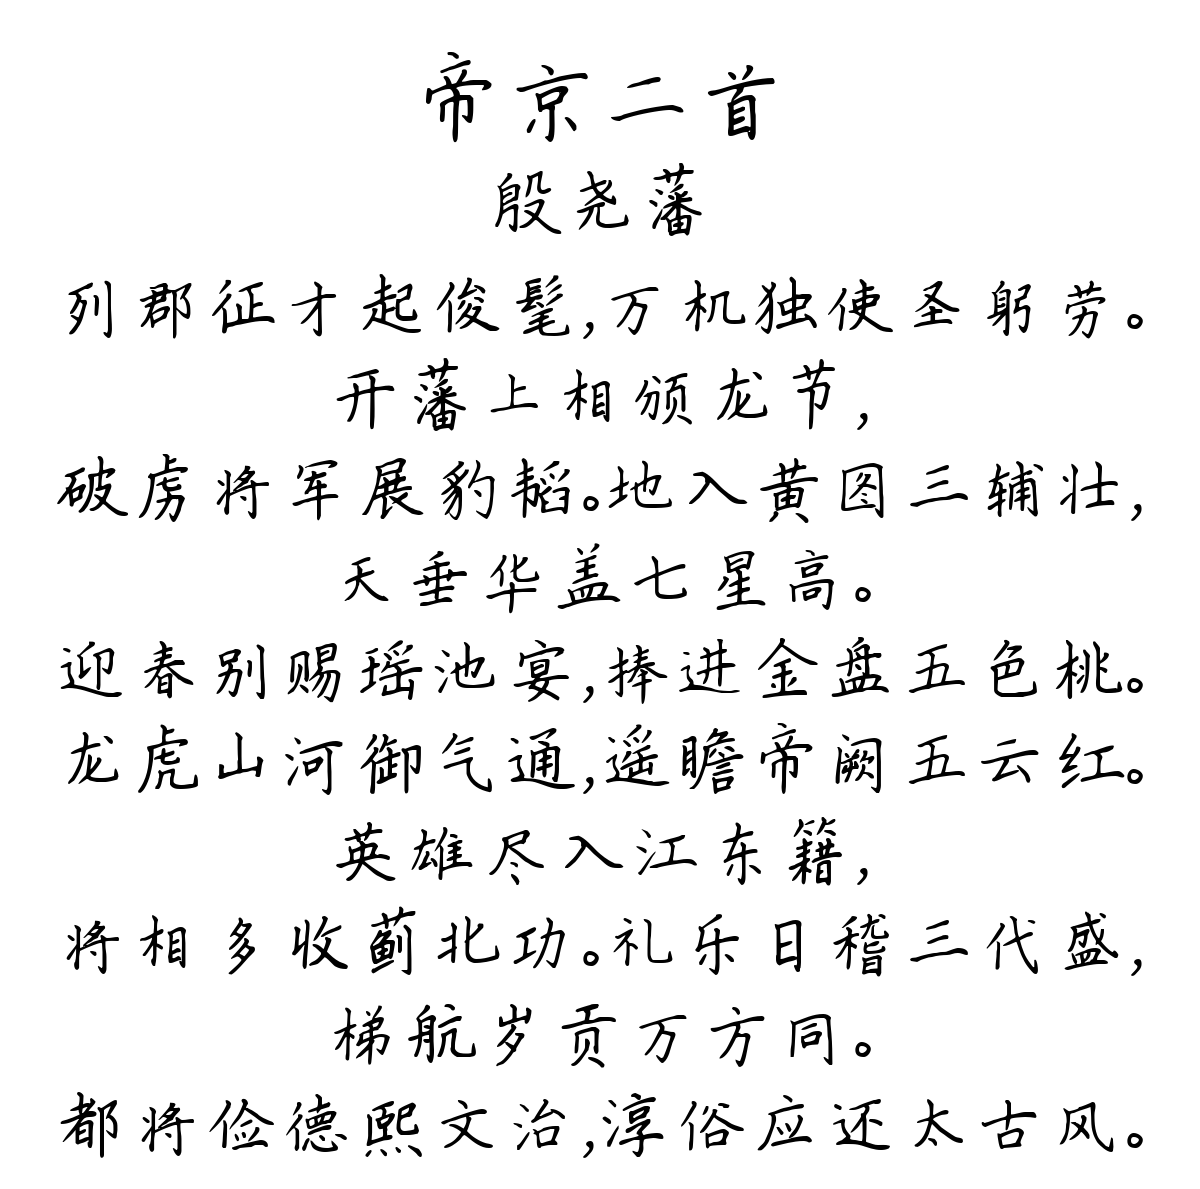 帝京二首
殷尧藩
列郡征才起俊髦,万机独使圣躬劳。
开藩上相颁龙节,
破虏将军展豹韬。地入黄图三辅壮,
天垂华盖七星高。
迎春别赐瑶池宴,捧进金盘五色桃。
龙虎山河御气通,遥瞻帝阙五云红。
英雄尽入江东籍,
将相多收蓟北功。礼乐日稽三代盛,
梯航岁贡万方同。
都将俭德熙文治,淳俗应还太古风。